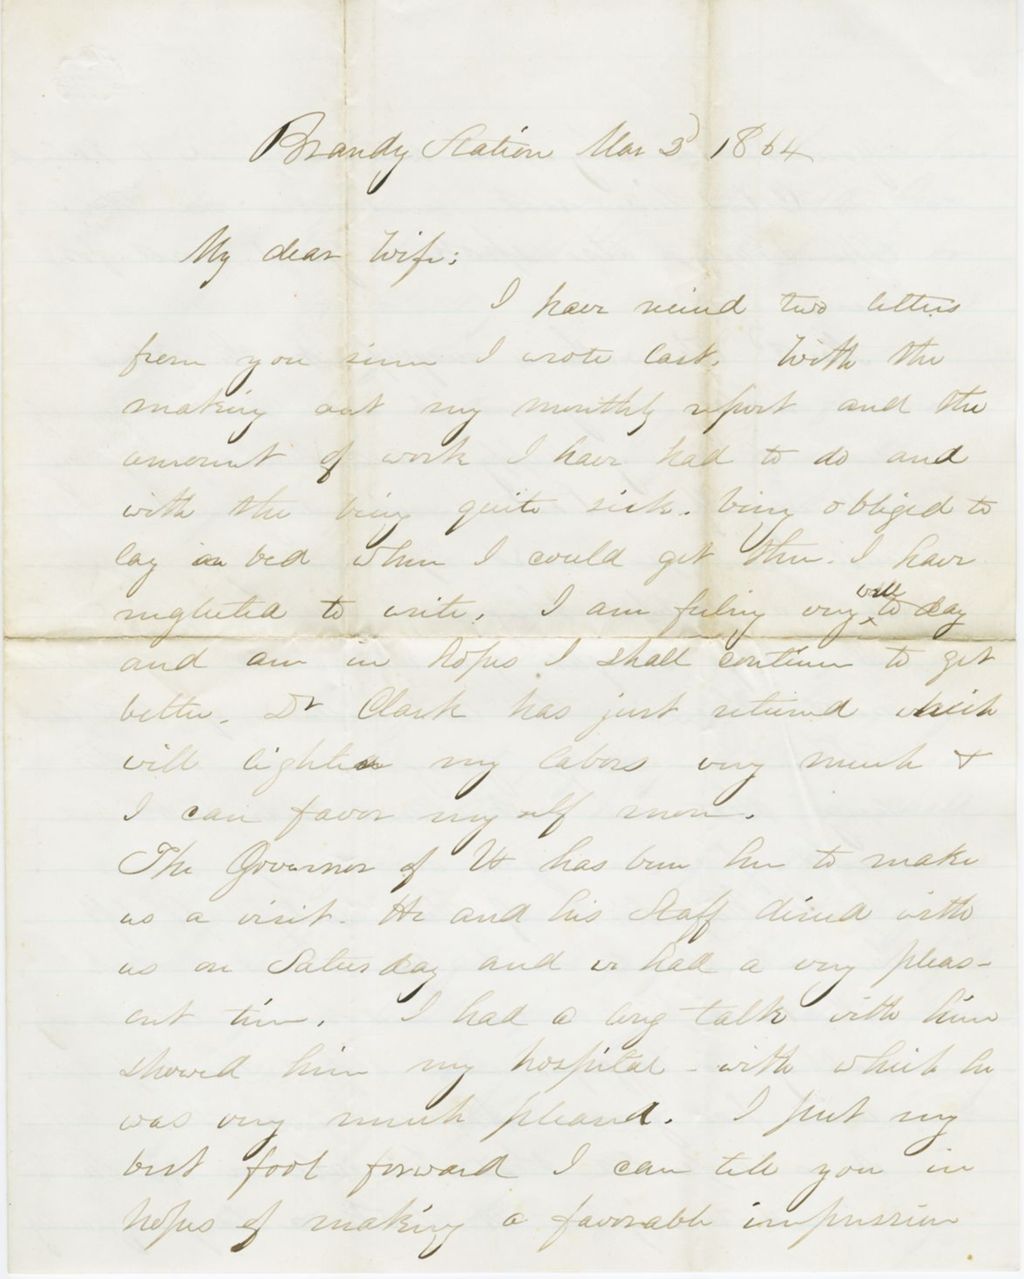 Brandy Station Mar 3d 1864
My dear Wife:
I have recieved two letters
from you since I wrote last. With the
making out my monthly report and the
amount of work I have had to do and
with the being quite sick. being obliged to
lay in bed when I could get there. I have
neglected to write. I am feeling very well to day
and am in hopes I shall continue to get
better. Dr Clark has just returned which
will lighten my labors very much &
I can favor my self more.
The Governor of Vt has been here to make
us a visit. He and his Staff dined with
us on Saturday and we had a very pleas-
ent time. I had a long talk with him
showed him my hospital - with which he
was very much pleased. I put my
best foot forward I can tell you in
hopes of making a favorable impression